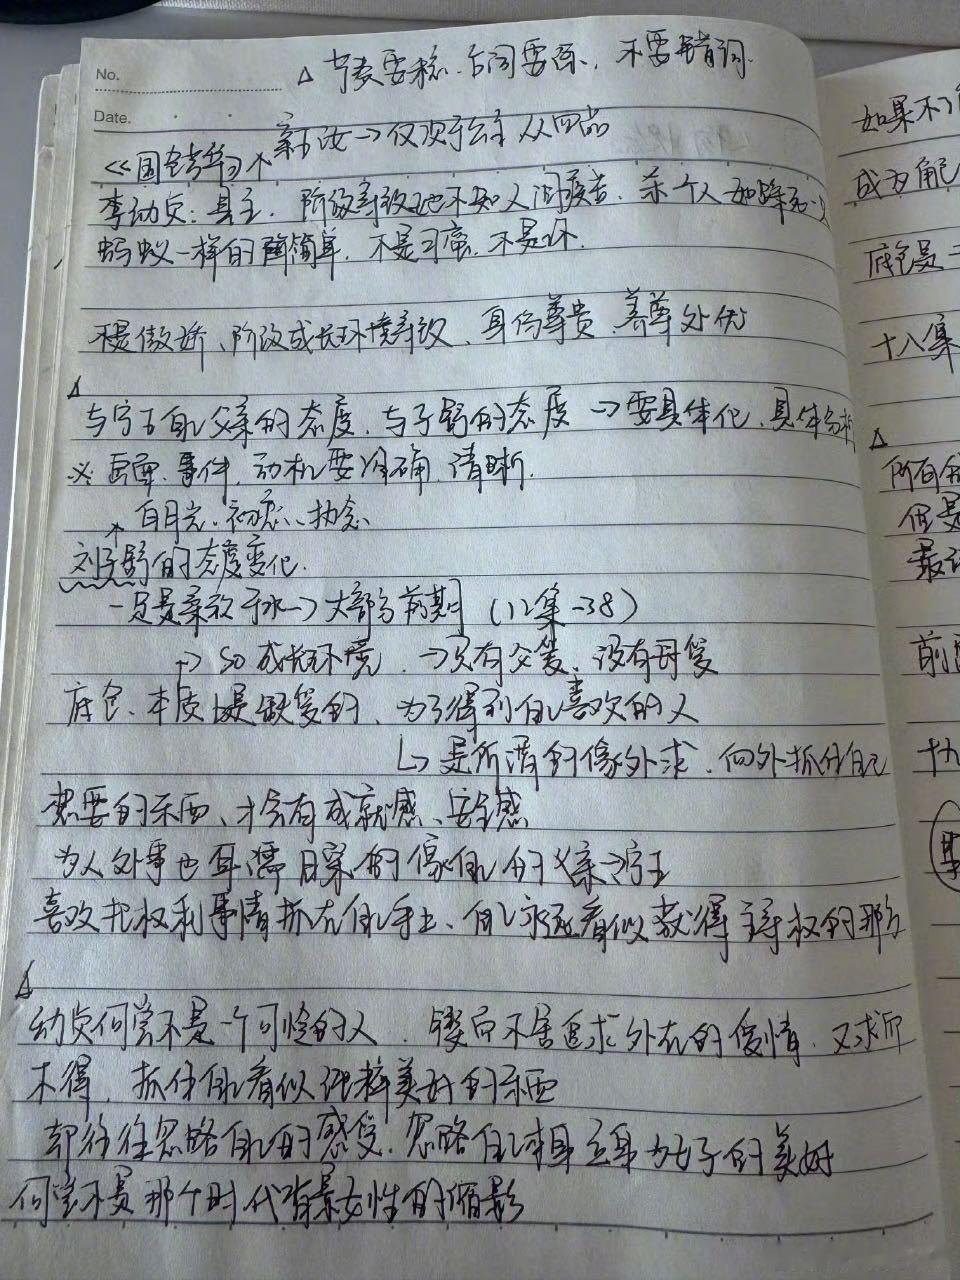 No.
△ 节奏要稳、台词要练、不要错词
Date.
亲王女→仅次于公主 从四品
《国色芳华》
李幼贞：县主、阶级导致她不知人间疾苦、杀个人如踩死一只
蚂蚁一样的简简单、不是可恶、不是坏.
不是傲娇、阶级成长环境导致、身份尊贵、养尊处优
△
与宁王自己父亲的态度、与子舒的态度→要具体化、具体分析
※ 画面、事件、动机要准确、清晰.
白月光、初恋、执念
刘子舒的态度变化.
一定是柔软于水→大部分前期（12集-38）
→so 成长环境、→只有父爱、没有母爱
底色、本质上是缺爱的、为了得到自己喜欢的人
↳是所谓的像外求、向外抓住自己
想要的东西、才会有成就感、安全感
为人处事也耳濡目染的像自己的父亲宁王
喜欢把权利事情抓在自己手上、自己永远看似获得主导权的那方
△
幼贞何尝不是一个可怜的人、马不停追求外在的爱情、又求而
不得、抓住自己看似纯粹美好的东西
却往往忽略自己的感受、忽略自己本身立身为女子的美好
何尝不是那个时代背景女性的缩影
如果不
成为角色
底色是一
十八集
△
所有的
但是
最
前
十九